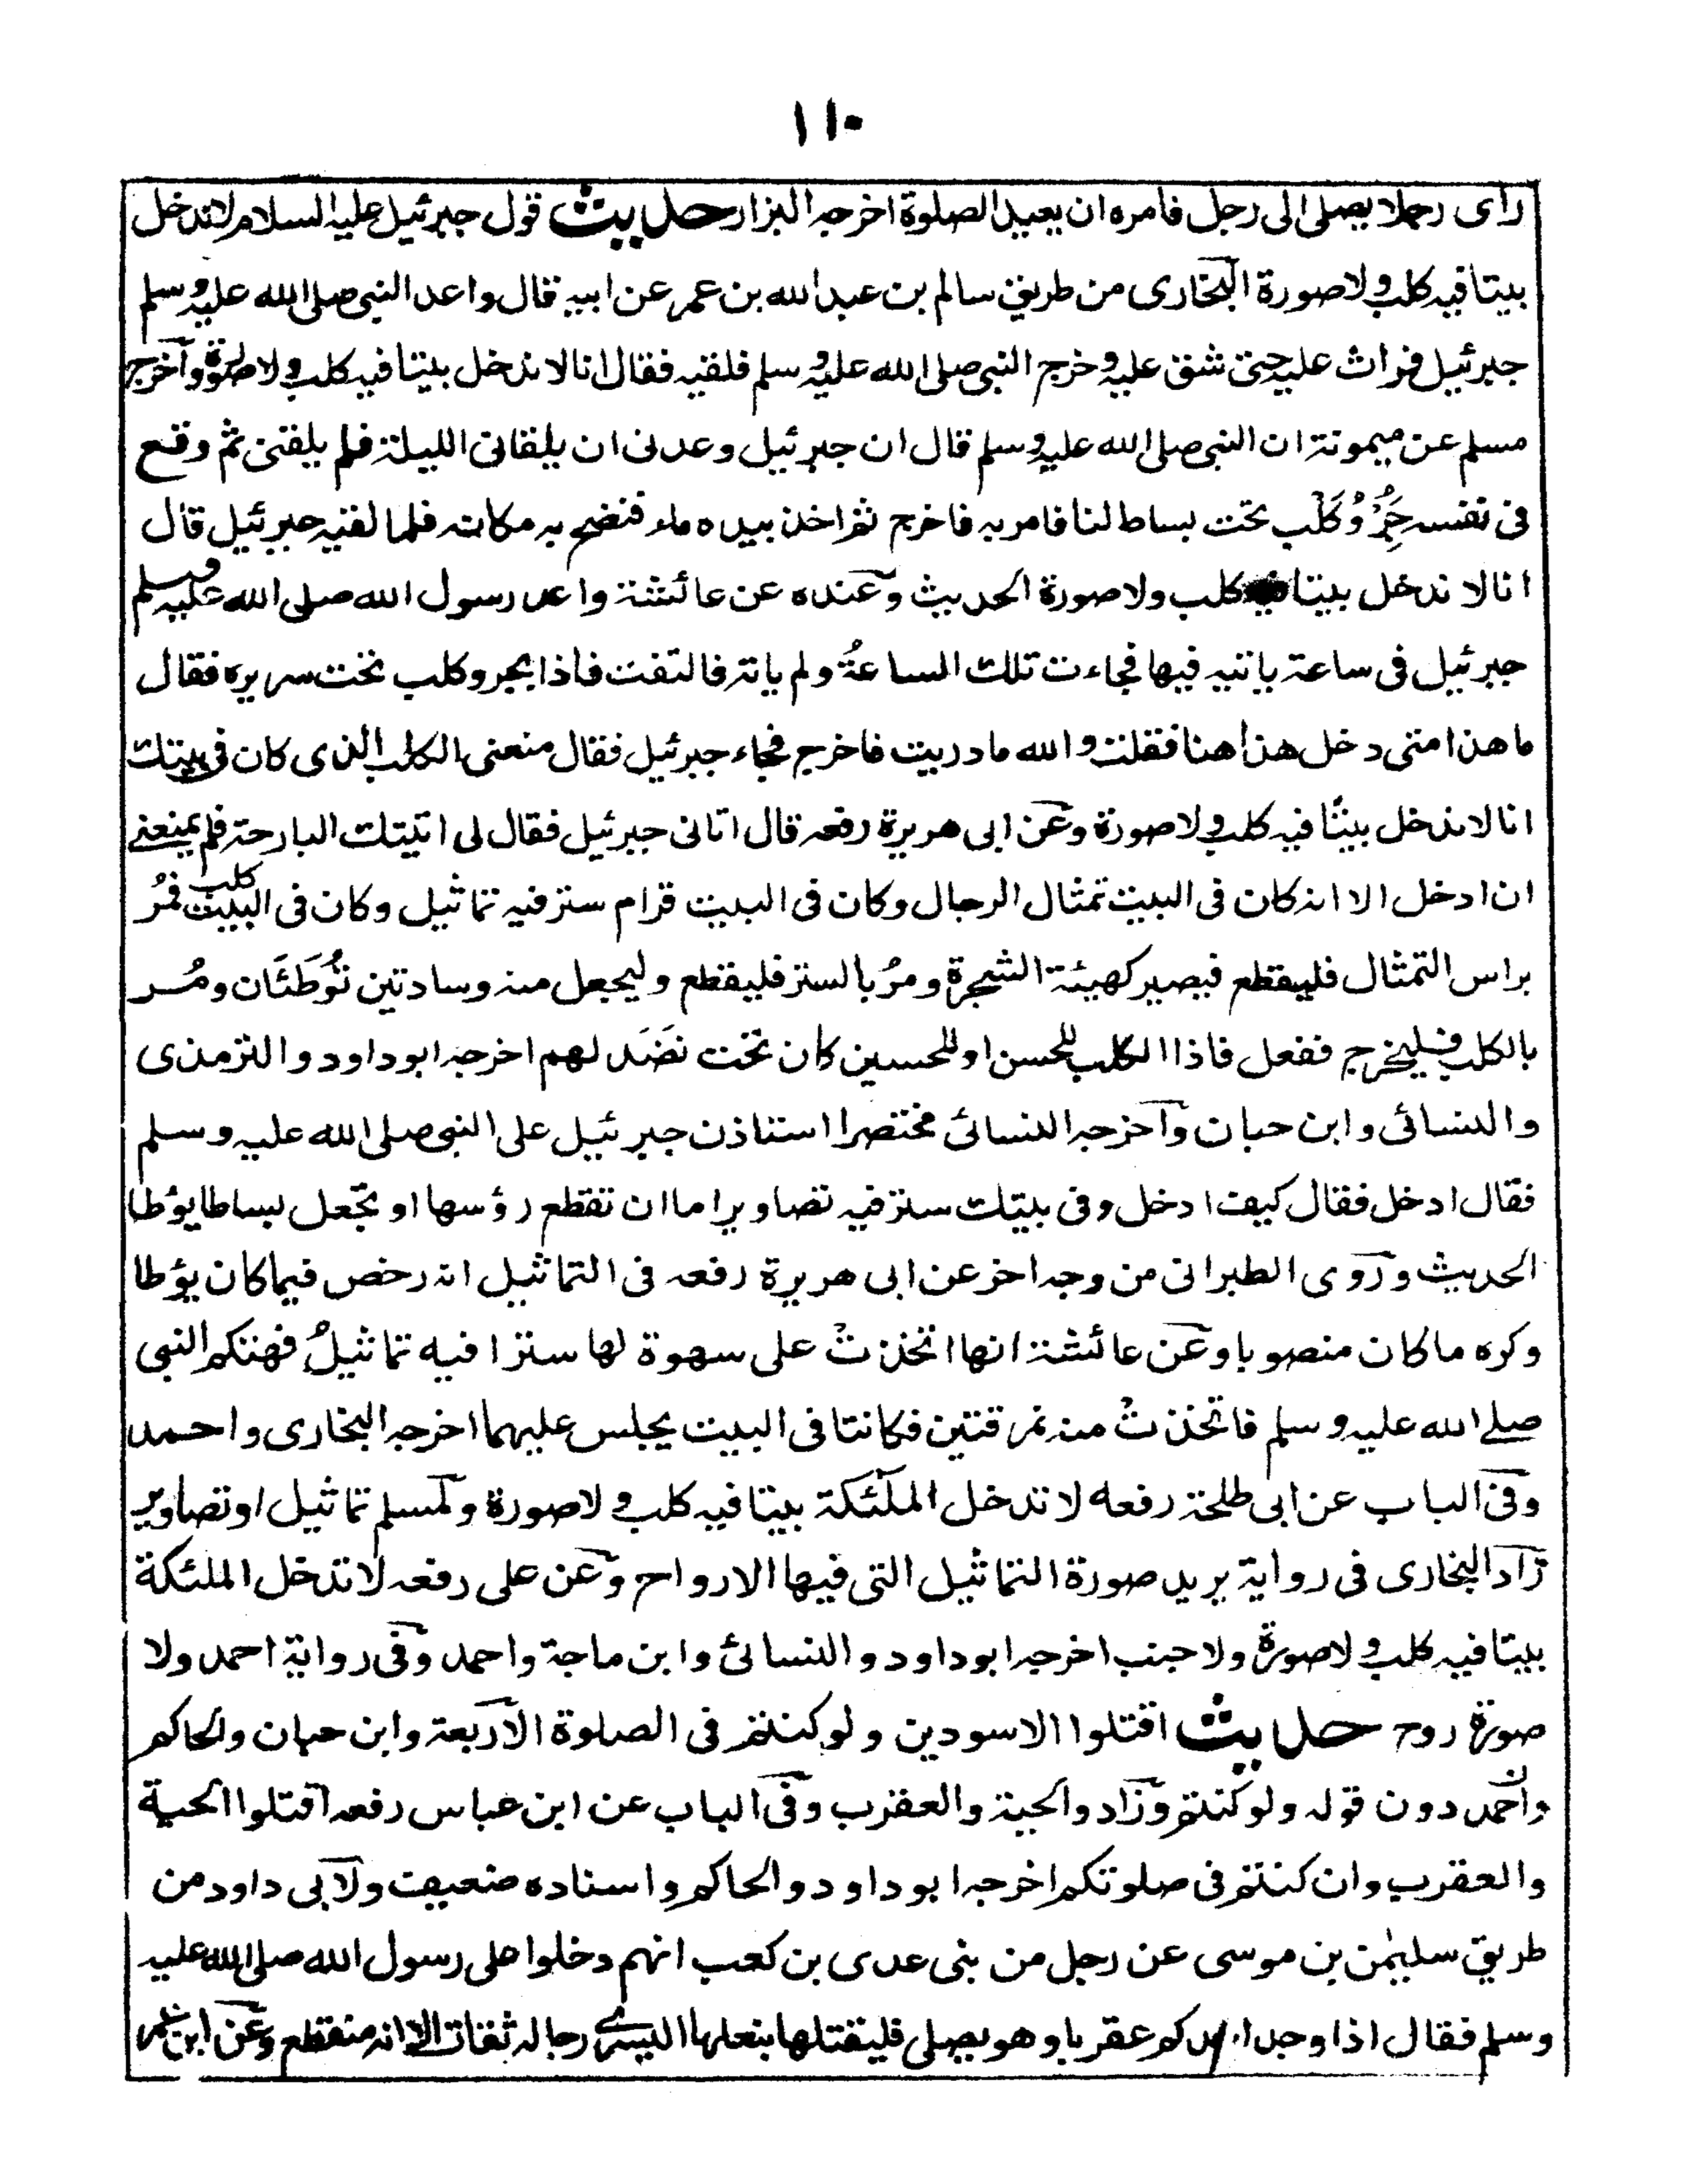 ١١٠
رأى رجلا يصلى الى رجل فامره ان يعيد الصلوة اخرجه البزار حديث قول جبرئيل عليه السلام لاندخل
بيتا فيه كلب ولا صورة البخارى من طريق سالم بن عبد الله بن عمر عن ابيه قال واعد النبى صلى الله عليه وسلم
جبرئيل فراث عليه حتى شق عليه وخرج النبى صلى الله عليه وسلم فلقيه فقال انا لا ندخل بيتا فيه كلب ولا صورة وآخرج
مسلم عن ميمونة ان النبى صلى الله عليه وسلم قال ان جبرئيل وعدنى ان يلقانى الليلة فلم يلقنى ثم وقع
فى نفسه جِرْوُ كَلْب تحت بساط لنا فامر به فاخرج ثم اخذ بيده ماء فنضح به مكانه فلما لقيه جبرئيل قال
انا لا ندخل بيتا فيه كلب ولا صورة الحديث وعنده عن عائشة واعد رسول الله صلى الله عليه وسلم
جبرئيل فى ساعة ياتيه فيها فجاءت تلك الساعةُ ولم ياته فالتفت فاذا بجرو كلب تحت سريره فقال
ما هذا متى دخل هذا هنا فقلت والله ما دريت فاخرج فجاء جبرئيل فقال منعنى الكلب الذى كان فى بيتك
انا لا ندخل بيتًا فيه كلب ولا صورة وعن ابى هريرة رفعه قال اتانى جبرئيل فقال لى اتيتك البارحة فلم يمنعنے
ان ادخل الا انه كان فى البيت تمثال الرجال وكان فى البيت قرام ستر فيه تماثيل وكان فى البيت كلب فمُر
براس التمثال فليقطع فيصير كهيئة الشجرة ومرُ بالستر فليقطع وليجعل منه وسادتين تُوطَئَان ومُر
بالكلب فليخرج ففعل فاذا الكلب للحسن او للحسين كان تحت نضَد لهم اخرجه ابو داود والترمذى
والنسائى وابن حبان وآخرجه النسائى مختصرا استاذن جبرئيل على النبى صلى الله عليه وسلم
فقال ادخل فقال كيف ادخل وفى بيتك ستر فيه تصاوير اما ان تقطع رؤسها او تجعل بساطا يؤطا
الحديث وروى الطبرانى من وجه اخر عن ابى هريرة رفعه فى التماثيل انه رخص فيما كان يؤطا
وكره ما كان منصوبا وعن عائشة انها اتخذتْ على سهوة لها سترا فيه تماثيلُ فهتكه النبى
صلے الله عليه وسلم فاتخذتْ منه نمرقتين فكانتا فى البيت يجلس عليهما اخرجه البخارى واحمد
وفى الباب عن ابى طلحة رفعه لا تدخل الملئكة بيتا فيه كلب ولا صورة ولمسلم تماثيل او تصاوير
زاد البخارى فى رواية يريد صورة التماثيل التى فيها الارواح وعن على رفعه لا تدخل الملئكة
بيتا فيه كلب ولا صورة ولا جنب اخرجه ابو داود والنسائى وابن ماجة واحمد وفى رواية احمد ولا
صورة روح حديث اقتلوا الاسودين ولو كنتم فى الصلوة الآربعة وابن حبان والحاكم
واحمد دون قوله ولو كنتم وزاد والحية والعقرب وفى الباب عن ابن عباس رفعه اقتلوا الحية
والعقرب وان كنتم فى صلوتكم اخرجه ابو داود والحاكم واسناده ضعيف ولآبى داود من
طريق سليمٰن بن موسى عن رجل من بنى عدى بن كعب انهم دخلوا على رسول الله صلى الله عليه
وسلم فقال اذا وجد احدكم عقربا وهو يصلى فليقتلها بنعلها اليسرے رجاله ثقات الا انه منقطع وعن ابن عمر